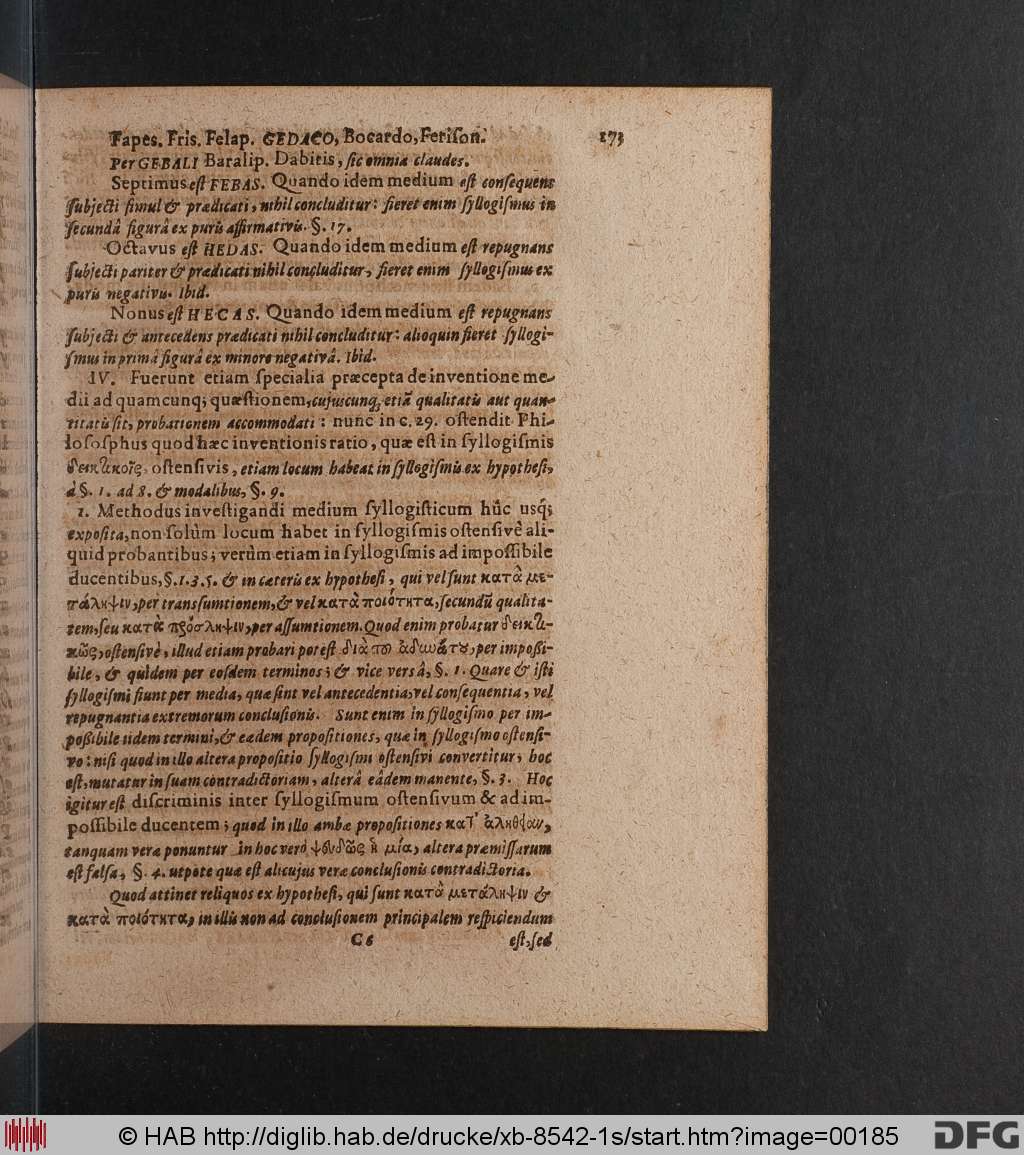 Fapes. Fris. Felap. GEDACO, Bocardo, Feriſon. 173
Per GEBALI Baralip. Dabitis, ſic omnia claudes.
Septimus eſt FEBAS. Quando idem medium eſt conſequens
ſubjecti ſimul & prædicati, nihil concluditur: fieret enim ſyllogiſmus in
ſecundâ figurâ ex puris affirmativis. §. 17.
Octavus eſt HEDAS. Quando idem medium eſt repugnans
ſubjecti pariter & prædicati nihil concluditur, fieret enim ſyllogiſmus ex
puris negativis. Ibid.
Nonus eſt HECAS. Quando idem medium eſt repugnans
ſubjecti & antecedens prædicati nihil concluditur: alioquin fieret ſyllogi-
ſmus in primâ figurâ ex minore negativâ. Ibid.
IV. Fuerunt etiam ſpecialia præcepta de inventione me-
dii ad quamcunq; quæſtionem, cujuscunq; etiã qualitatis aut quan-
titatis ſit, probationem accommodati: nunc in c. 29. oſtendit Phi-
loſoſphus quod hæc inventionis ratio, quæ eſt in ſyllogiſmis
δεικτικοῖς, oſtenſivis, etiam locum habeat in ſyllogiſmis ex hypotheſi,
à §. 1. ad 8. & modalibus, §. 9.
1. Methodus inveſtigandi medium ſyllogiſticum hûc usq;
expoſita, non ſolùm locum habet in ſyllogiſmis oſtenſivè ali-
quid probantibus; verùm etiam in ſyllogiſmis ad impoſſibile
ducentibus, §. 1. 3. 5. & in cæteris ex hypotheſi, qui vel ſunt κατὰ με-
τάληψιν, per transſumtionem, & vel κατὰ ποιότητα, ſecundũ qualita-
tem, ſeu κατὰ πρόσληψιν, per aſſumtionem. Quod enim probatur δεικτι-
κῶς, oſtenſivè, illud etiam probari poteſt διὰ τοῦ ἀδυνάτου, per impoſſi-
bile, & quidem per eoſdem terminos; & vice versâ, §. 1. Quare & iſti
ſyllogiſmi fiunt per media, quæ ſint vel antecedentia, vel conſequentia, vel
repugnantia extremorum concluſionis. Sunt enim in ſyllogiſmo per im-
poßibile iidem termini, & eædem propoſitiones, quæ in ſyllogiſmo oſtenſi-
vo: niſi quod in illo altera propoſitio ſyllogiſmi oſtenſivi convertitur, hoc
eſt, mutatur in ſuam contradictoriam, alterâ eâdem manente, §. 3. Hoc
igitur eſt diſcriminis inter ſyllogiſmum oſtenſivum & ad im-
poſſibile ducentem; quod in illo ambæ propoſitiones κατ' ἀλήθειαν,
tanquam veræ ponuntur in hoc verò ψευδῶς ἡ μία, altera præmiſſarum
eſt falſa, §. 4. utpote quæ eſt alicujus veræ concluſionis contradictoria.
Quod attinet reliquos ex hypotheſi, qui ſunt κατὰ μετάληψιν &
κατὰ ποιότητα, in illis non ad concluſionem principalem reſpiciendum
C 6 eſt, ſed
© HAB http://diglib.hab.de/drucke/xb-8542-1s/start.htm?image=00185 DFG